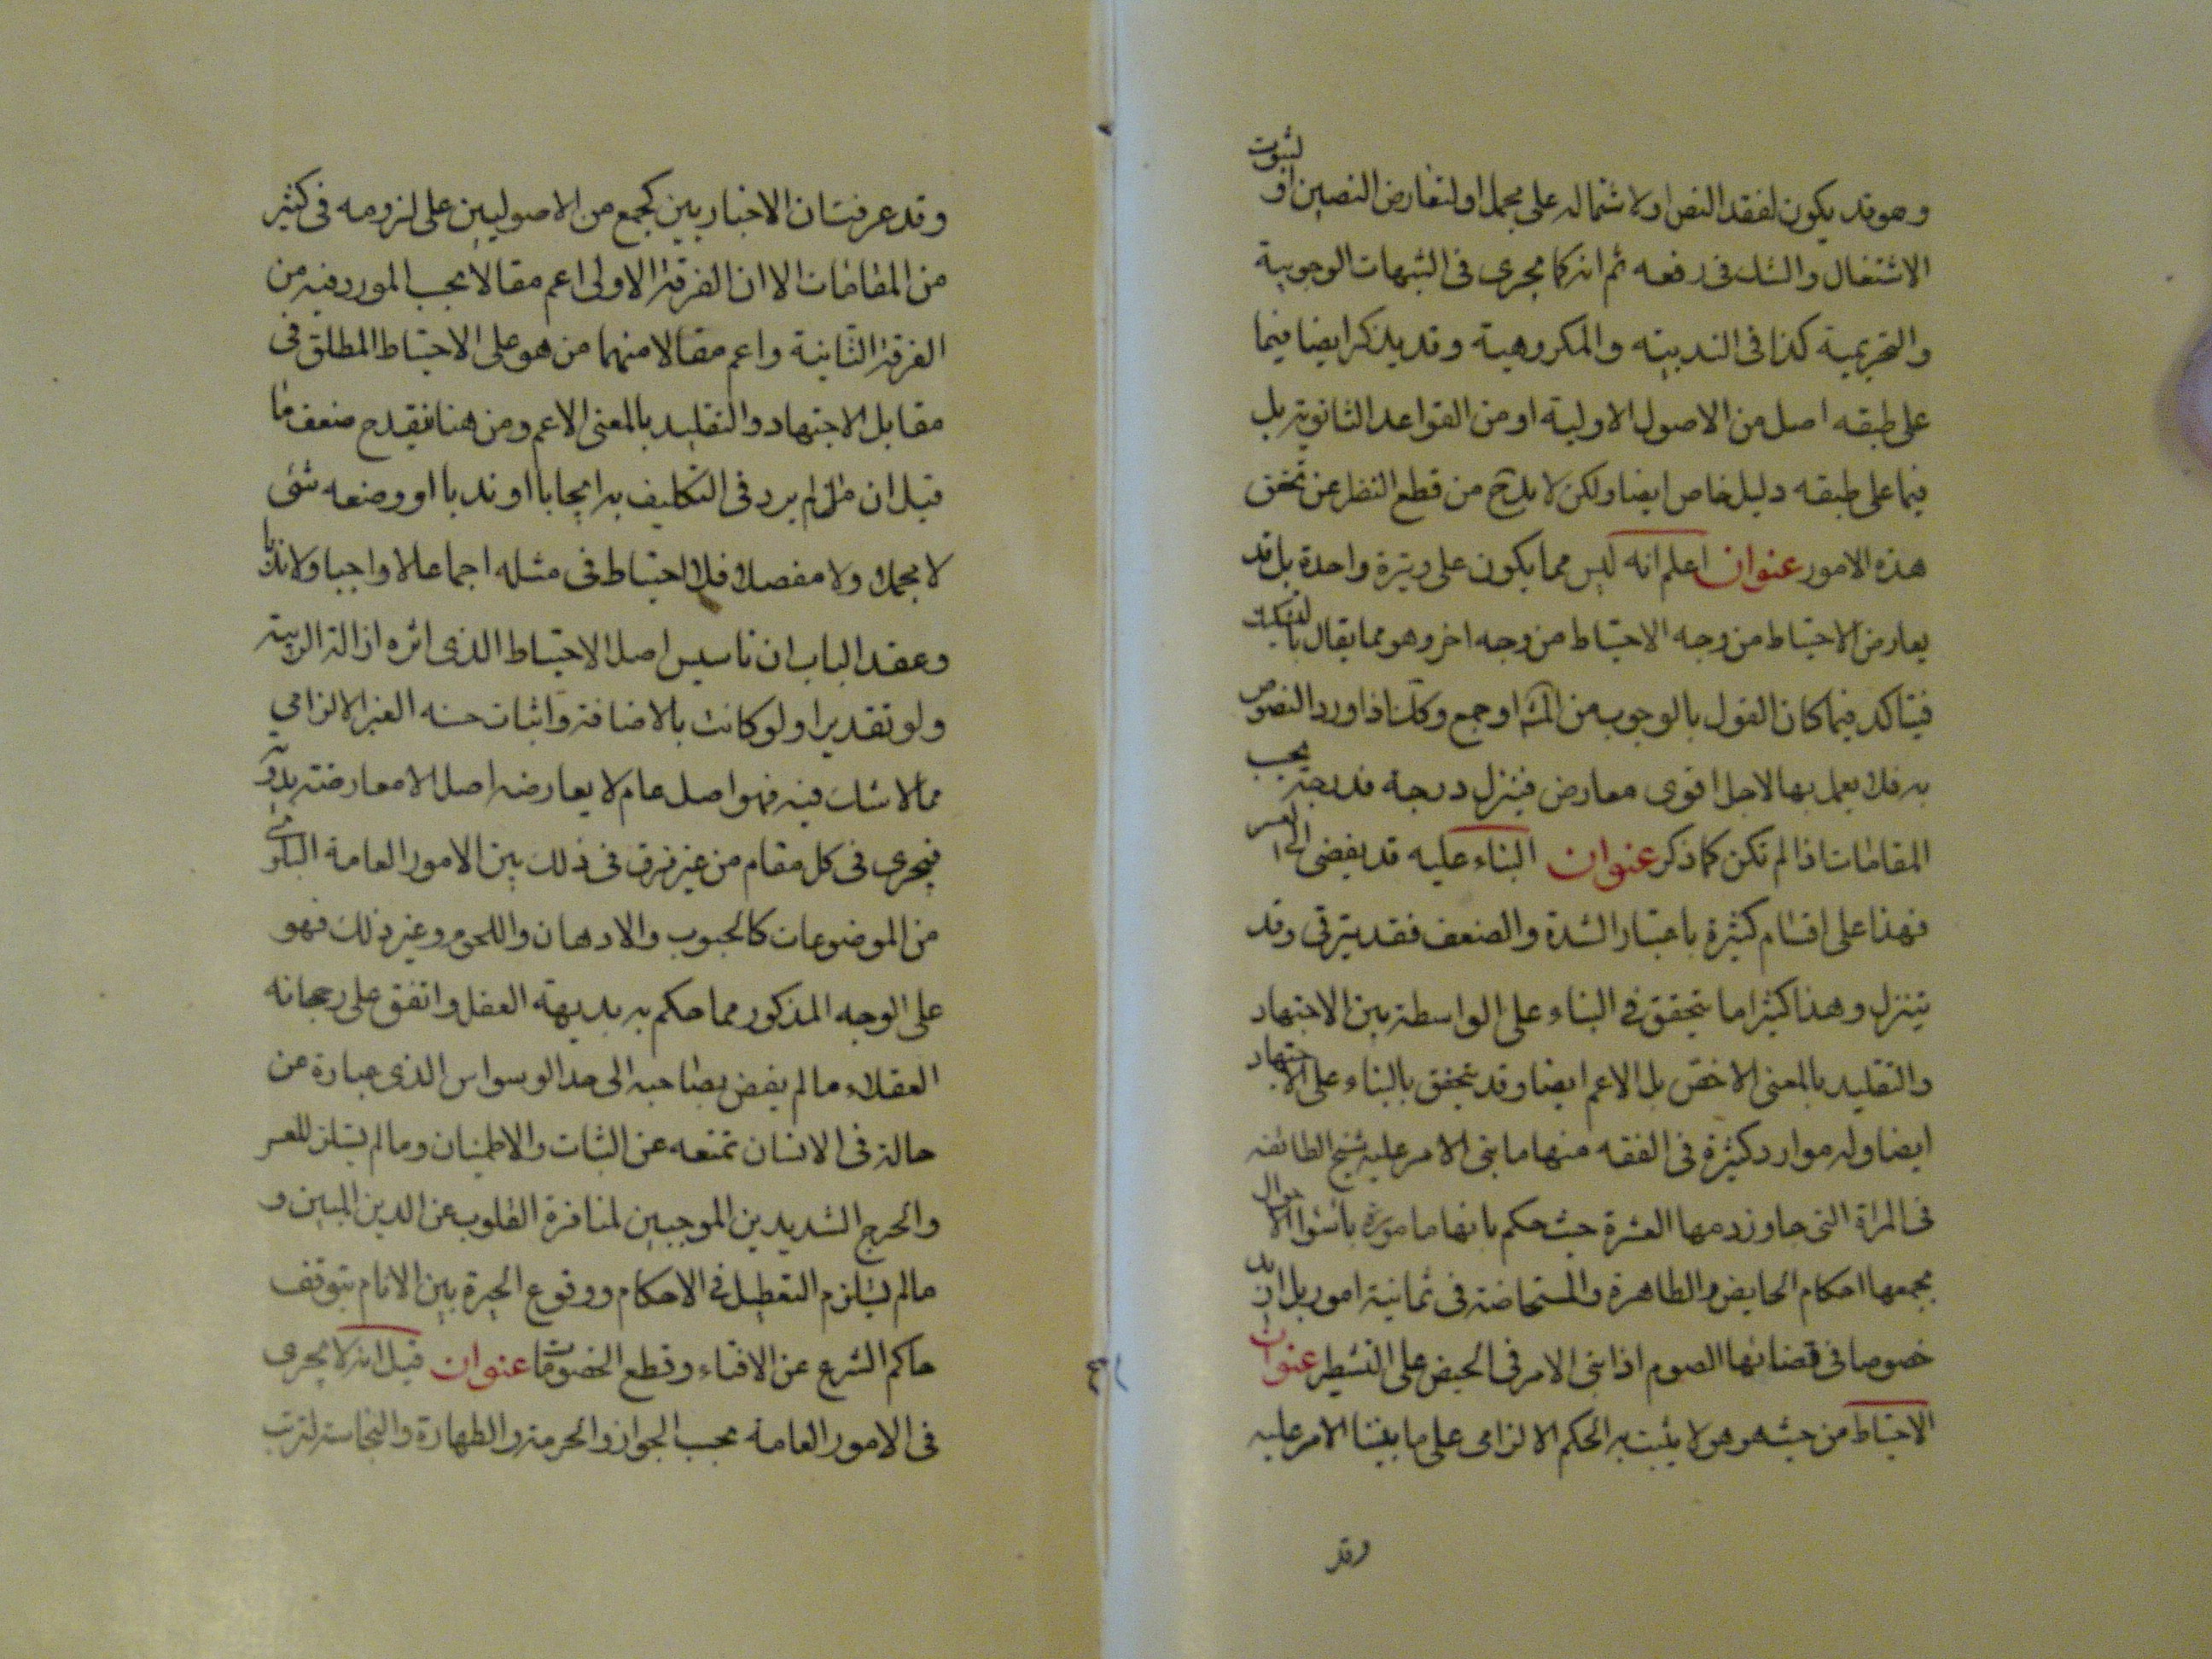 وهو قد يكون لفقد النص او لاشتماله على مجمل او لتعارض النصين او لثبوت
الاشتغال والشك فى رفعه ثم انه كما يجرى فى الشبهات الوجوبية
والتحريمية كذا فى الندبيته والمكروهية وقد يذكر ايضا فيما
على طبقه اصل من الاصول الاولية او من القواعد الثانوية بل
فيما على طبقه دليل خاص ايضا ولكن لا بد ح من قطع النظر عن تحقق
هذه الامور عنوان اعلم انه ليس مما يكون على وتيرة واحدة بل قد
يعارض الاحتياط من وجه الاحتياط من وجه اخر وهو مما يقال بالتشكيك
فيتاكد فيما كان القول بالوجوب من المش او جمع وكك اذا ورد النصوص
به فلا يعمل بها لاجل اقوى معارض فيتنزل درجة فدرجة بحسب
المقامات اذا لم تكن كما ذكر عنوان البناء عليه قد يفضى الى العسر
فهذا على اقسام كثيرة باعتبار الشدة والضعف فقد يترقى وقد
يتنزل وهذا كثيرا ما يتحقق فى البناء على الواسطة بين الاجتهاد
والتقليد بالمعنى الاخص بل الاعم ايضا وقد يتحقق بالبناء على الاجتهاد
ايضا وله موارد كثيرة فى الفقه منها ما بنى الامر عليه شيخ الطائفه
فى المراة التى جاوز دمها العشرة حيث حكم بانها مامورة باسوا الاحوال
بجمعها احكام الحايض والطاهرة والمستحاضة فى ثمانية امور بل ازيد
خصوصا فى قضائها الصوم اذا بنى الامر فى الحيض على التشطير عنوان
الاحتياط من حيث هو هو لا يثبت به الحكم الالزامى على ما بيننا الامر عليه
وقد
وقد عرفت ان الاخباريين كجمع من الاصوليين على لزومه فى كثير
من المقامات الا ان الفرقة الاولى اعم مقالا بحسب المورد فيه من
الفرقة الثانية واعم مقالا منهما من هو على الاحتياط المطلق فى
مقابل الاجتهاد والتقليد بالمعنى الاعم ومن هنا ينقدح ضعف ما
قيل ان ما لم يرد فى التكليف به ايجابا او ندبا او وضعه شئ
لا مجملا ولا مفصلا فلا احتياط فى مثله اجماعا لا واجبا ولا ندبا
وعقد الباب ان تاسيس اصل الاحتياط الذى اثره ازالة الريبة
ولو تقديرا ولو كانت بالاضافة واثبات حسنه الغير الالزامي
مما لا شك فيه فهو اصل عام لا يعارضه اصل الا معارضته بدوية
فيجرى فى كل مقام من غير فرق فى ذلك بين الامور العامة البلوى
من الموضوعات كالحبوب والادهان واللحوم وغير ذلك فهو
على الوجه المذكور مما حكم به بديهة العقل واتفق على رجحانه
العقلاء ما لم يفض بصاحبه الى حد الوسواس الذى عبارة عن
حالة فى الانسان تمنعه عن الثبات والاطمينان وما لم يستلزم للعسر
والحرج الشديدين الموجبين لمنافرة القلوب عن الدين المبين و
ما لم يستلزم التعطيل فى الاحكام ووقوع الحيرة بين الانام بتوقف
حاكم الشرع عن الافتاء وقطع الخصومات عنوان قيل انه لا يجرى
فى الامور العامة بحسب الجواز والحرمة والطهارة والنجاسة لترتب